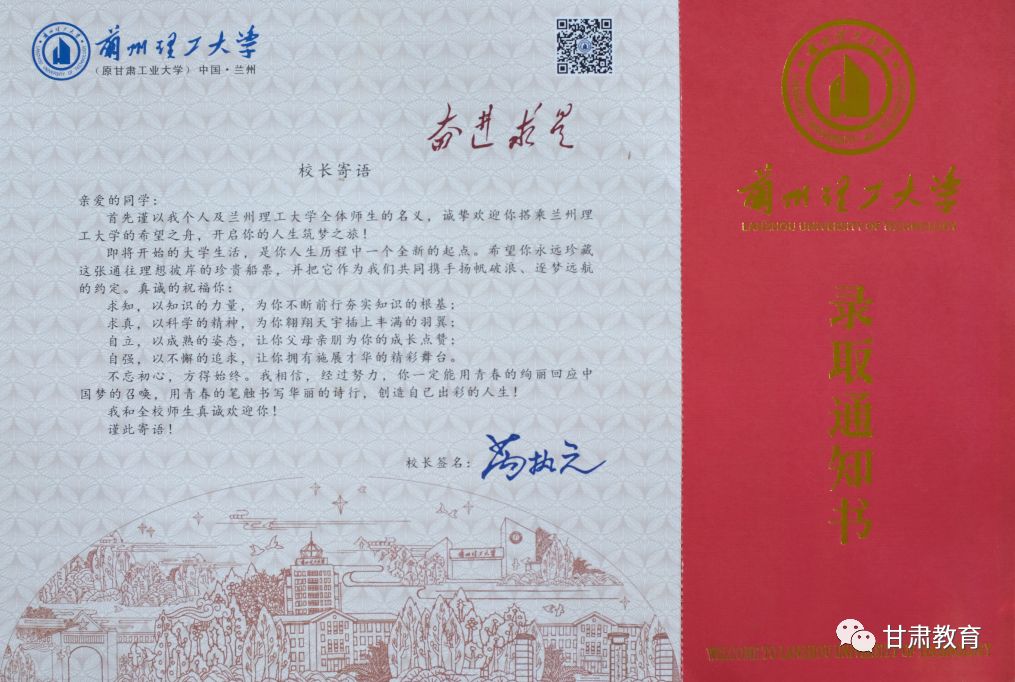 蘭州理工大学
（原甘肃工业大学）中国·兰州
奋进求是
校长寄语
亲爱的同学：
首先谨以我个人及兰州理工大学全体师生的名义，诚挚欢迎你搭乘兰州理
工大学的希望之舟，开启你的人生筑梦之旅！
即将开始的大学生活，是你人生历程中一个全新的起点。希望你永远珍藏
这张通往理想彼岸的珍贵船票，并把它作为我们共同携手扬帆破浪、逐梦远航
的约定。真诚的祝福你：
求知，以知识的力量，为你不断前行夯实知识的根基；
求真，以科学的精神，为你翱翔天宇插上丰满的羽翼；
自立，以成熟的姿态，让你父母亲朋为你的成长点赞；
自强，以不懈的追求，让你拥有施展才华的精彩舞台。
不忘初心，方得始终。我相信，经过努力，你一定能用青春的绚丽回应中
国梦的召唤，用青春的笔触书写华丽的诗行，创造自己出彩的人生！
我和全校师生真诚欢迎你！
谨此寄语！
校长签名：
蘭州理工大学
蘭州理工大学
LANZHOU UNIVERSITY OF TECHNOLOGY
录取通知书
WELCOME TO LANZHOU UNIVERSITY OF TECHNOLOGY
甘肃教育